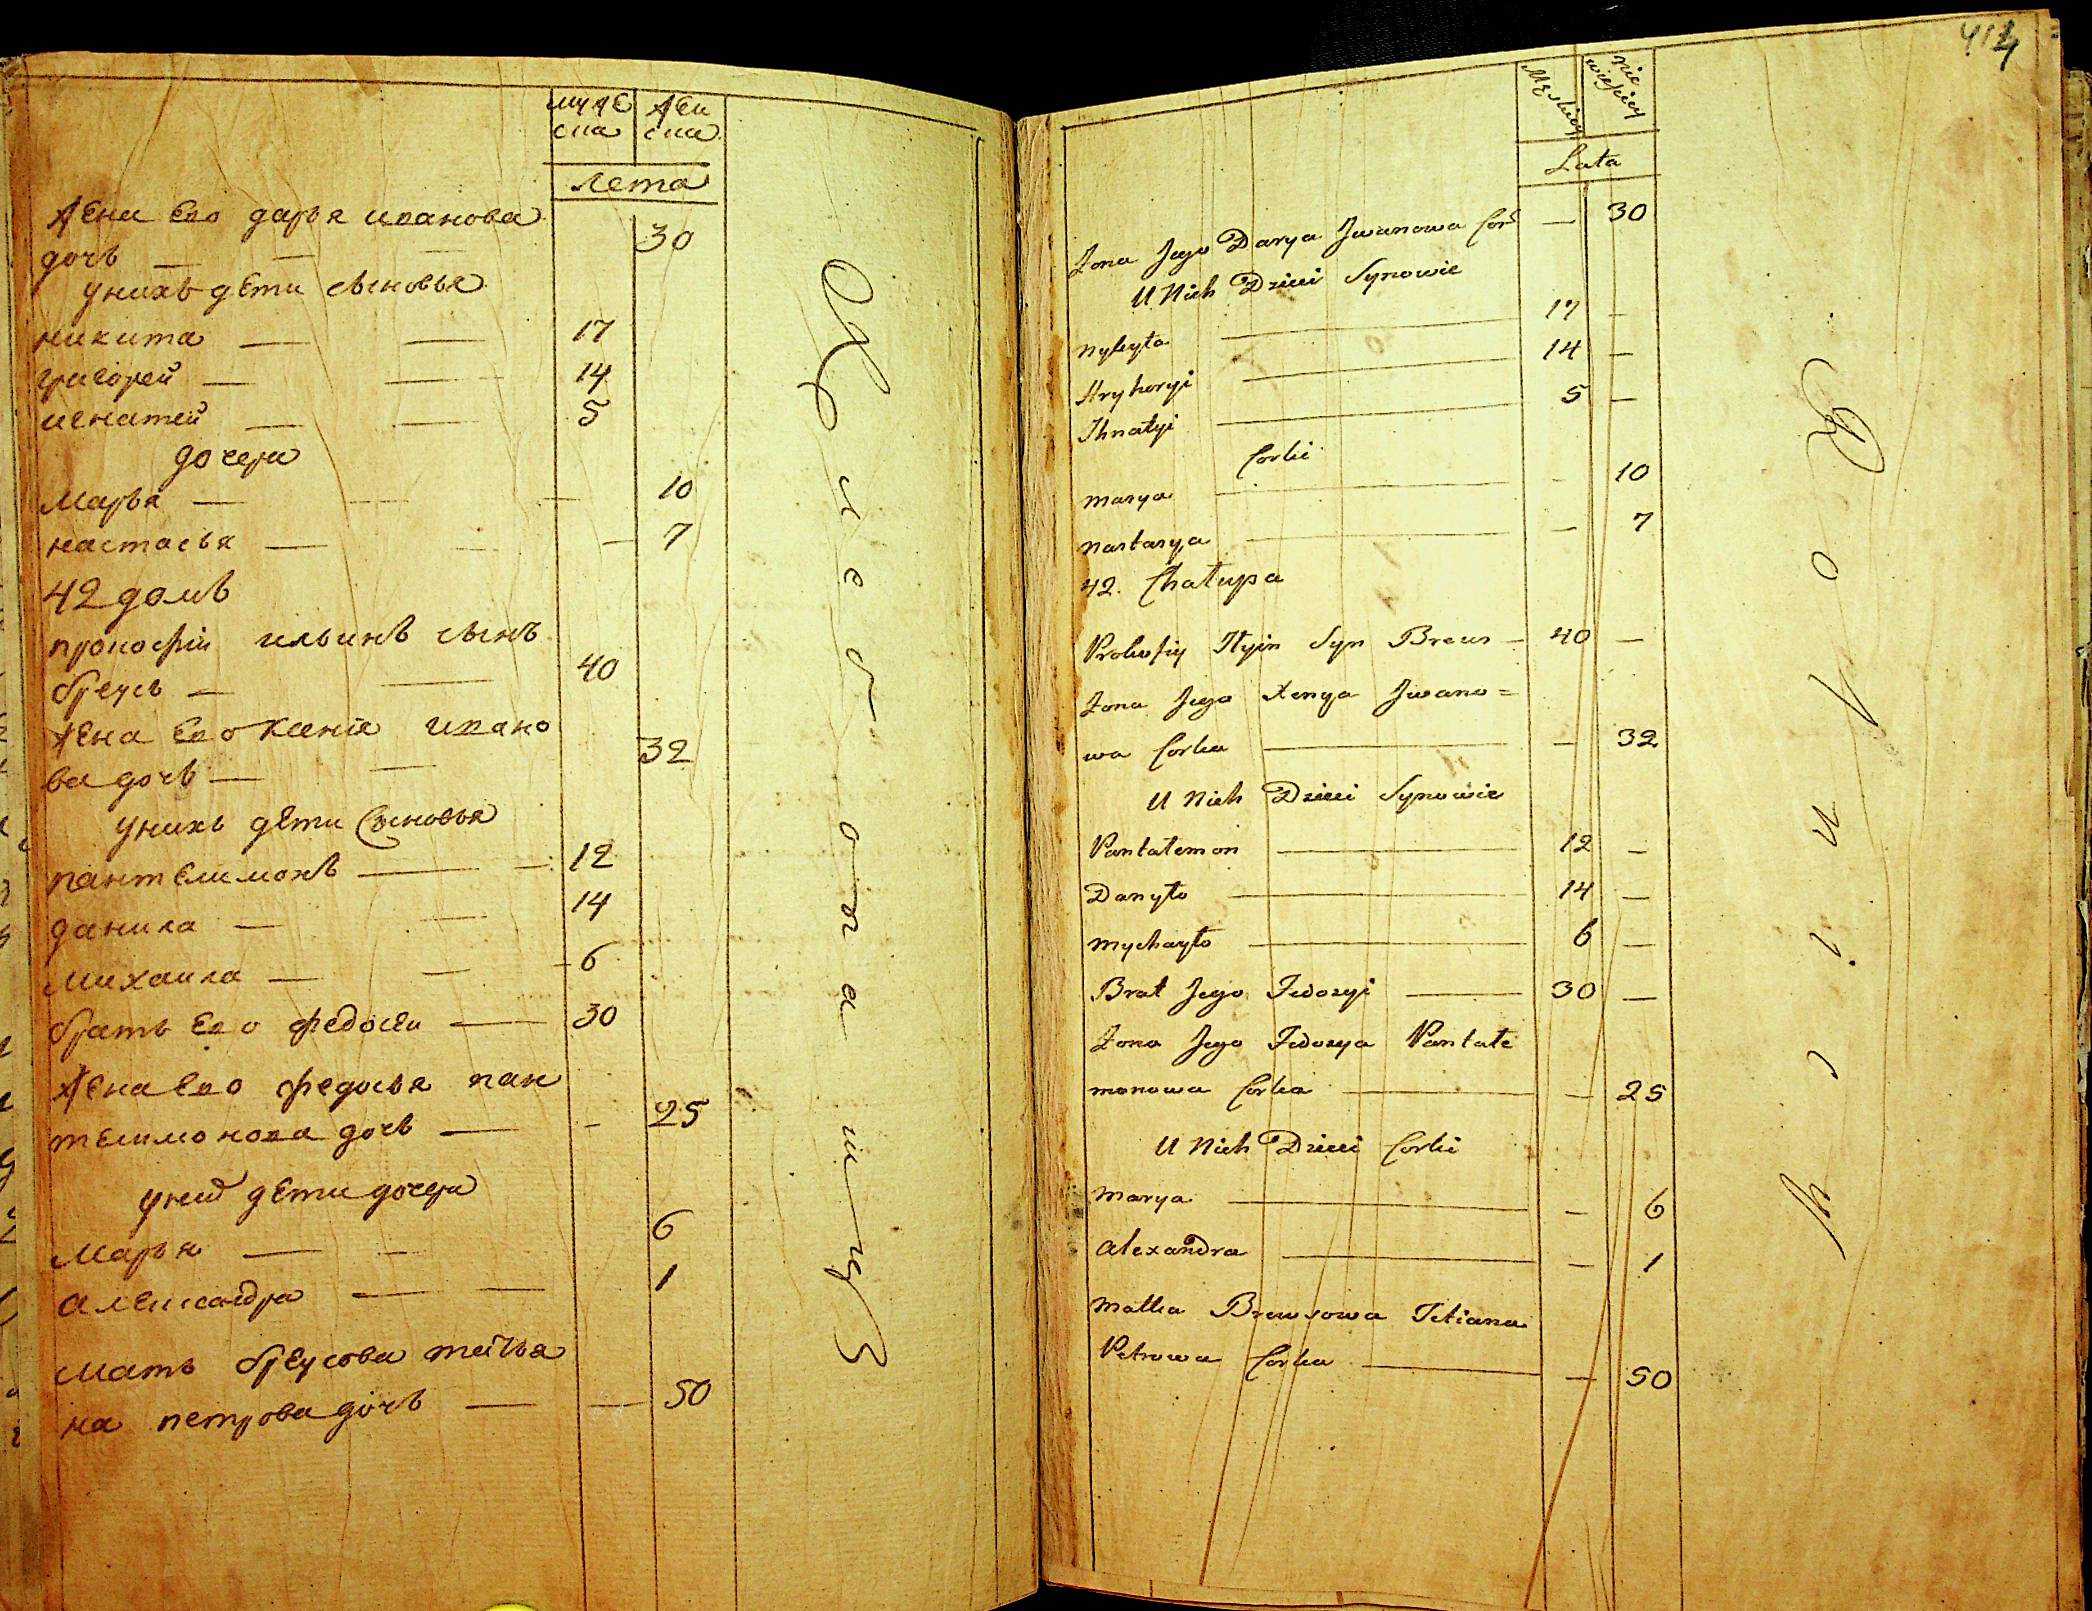 муже
ска
жен
ска
лета
жена ево дарья иванова
дочь — — — 30
у нихъ дети сыновья
никита — — 17
григорей — — 14
игнатей — — 5
дочери
марья — — — 10
настасья — — — 7
42 домъ
прокофіи ильинъ сынъ
бреусь — — 40
жена ево ксения ивано
ва дочь — — 32
у нихъ дети сыновья
пантелимонъ — — 12
данила — — 14
михаила — — 6
братъ ево федосеи — 30
жена ево федосья пан
телимонова дочь — — 25
у них дети дочери
марья — — 6
александра — — 1
мать бреусова татья
на петрова дочь — — 50
414
Męskiey
Nie
wieściey
Lata
Żona Jego Darya Jwanowa Cor — 30
U Nich Dzieci Synowie
Nykyta — 17 —
Hryhoryi — 14 —
Ihnatyi — 5 —
Corki
Marya — — 10
Nastasya — — 7
42. Chałupa
Prokofiy Ilyin Syn Breus — 40 —
Żona Jego Xenya Jwano=
wa Corka — — 32
U Nich Dzieci Synowie
Pantalemon — 12 —
Danyło — 14 —
Mychayło — 6 —
Brat Jego Fedosyi — 30 —
Żona Jego Fedosya Pantale
monowa Corka — — 25
U Nich Dzieci Corki
Marya — — 6
Alexandra — — 1
Matka Breusowa Tetiana
Petrowa Corka — — 50